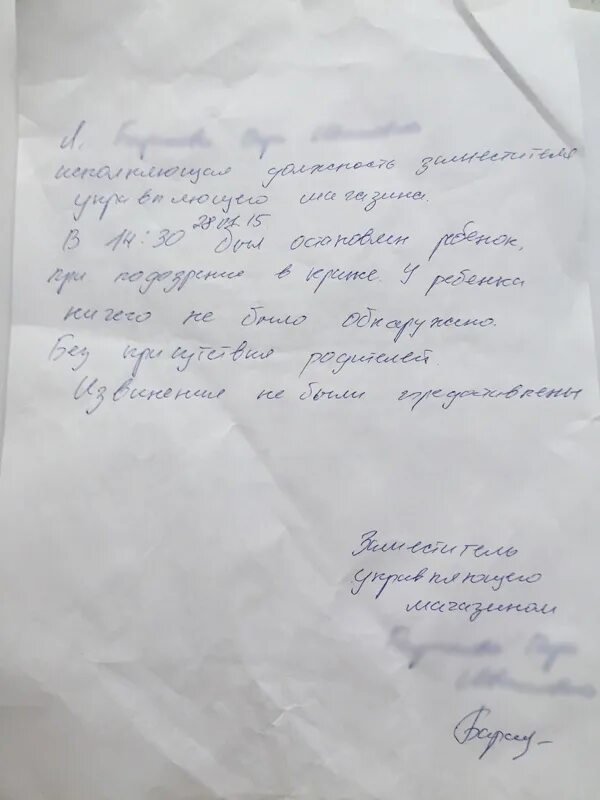 Я,
исполняющая должность заместителя
управляющего магазина.
В 14:30 28.07.15 был остановлен ребенок,
при подозрение в краже. У ребенка
ничего не было обнаружено.
Без присутствия родителей.
Извинение не были предоставлены
Заместитель
управляющего
магазином